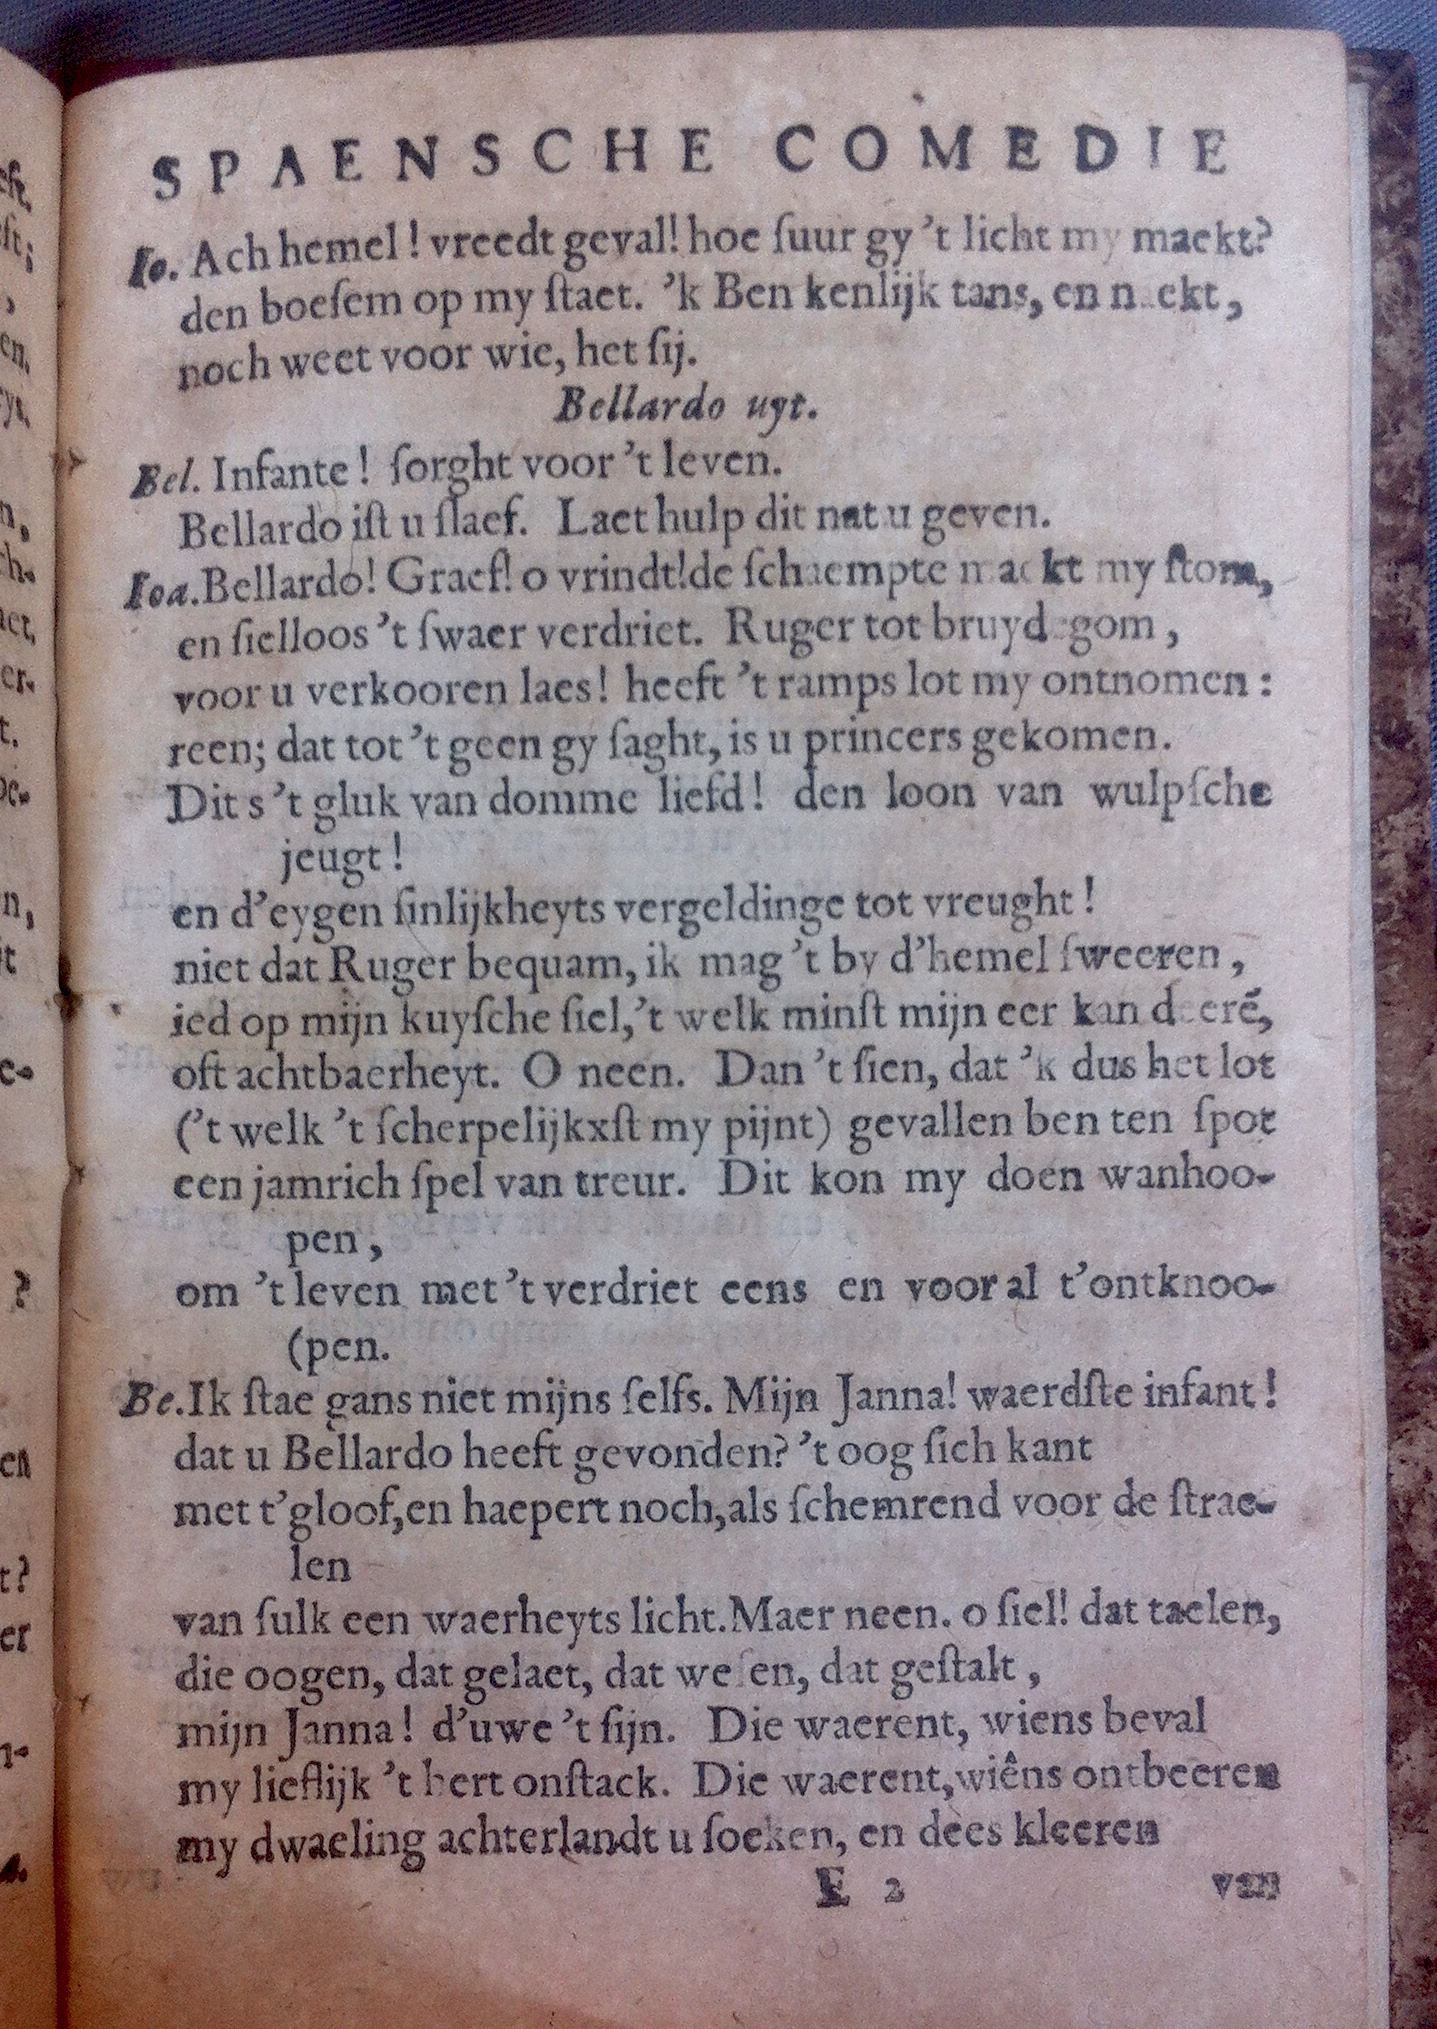 SPAENSCHE COMEDIE
Io. Ach hemel! vreedt geval! hoe ſuur gy 't licht my maekt?
den boeſem op my ſtaet. 'k Ben kenlijk tans, en naekt,
noch weet voor wie, het ſij.
Bellardo uyt.
Bel. Infante! ſorght voor 't leven.
Bellardo iſt u ſlaef. Laet hulp dit nat u geven.
Ioa. Bellardo! Graef! o vrindt! de ſchaempte maekt my ſtom,
en ſielloos 't ſwaer verdriet. Ruger tot bruydegom,
voor u verkooren laes! heeft 't ramps lot my ontnomen:
reen; dat tot 't geen gy ſaght, is u princers gekomen.
Dit s 't gluk van domme liefd! den loon van wulpſche
jeugt!
en d'eygen ſinlijkheyts vergeldinge tot vreught!
niet dat Ruger bequam, ik mag 't by d'hemel ſweeren,
ied op mijn kuyſche ſiel, 't welk minſt mijn eer kan deerē,
oft achtbaerheyt. O neen. Dan 't ſien, dat 'k dus het lot
('t welk 't ſcherpelijkxſt my pijnt) gevallen ben ten ſpot
een jamrich ſpel van treur. Dit kon my doen wanhoo-
pen,
om 't leven met 't verdriet eens en voor al t'ontknoo-
(pen.
Be. Ik ſtae gans niet mijns ſelfs. Mijn Janna! waerdſte infant!
dat u Bellardo heeft gevonden? 't oog ſich kant
met t'gloof, en haepert noch, als ſchemrend voor de ſtrae-
len
van ſulk een waerheyts licht. Maer neen. o ſiel! dat taelen,
die oogen, dat gelaet, dat weſen, dat geſtalt,
mijn Janna! d'uwe 't ſijn. Die waerent, wiens beval
my lieflijk 't hert onſtack. Die waerent, wiêns ontbeeren
my dwaeling achterlandt u ſoeken, en dees kleeren
E 2 van